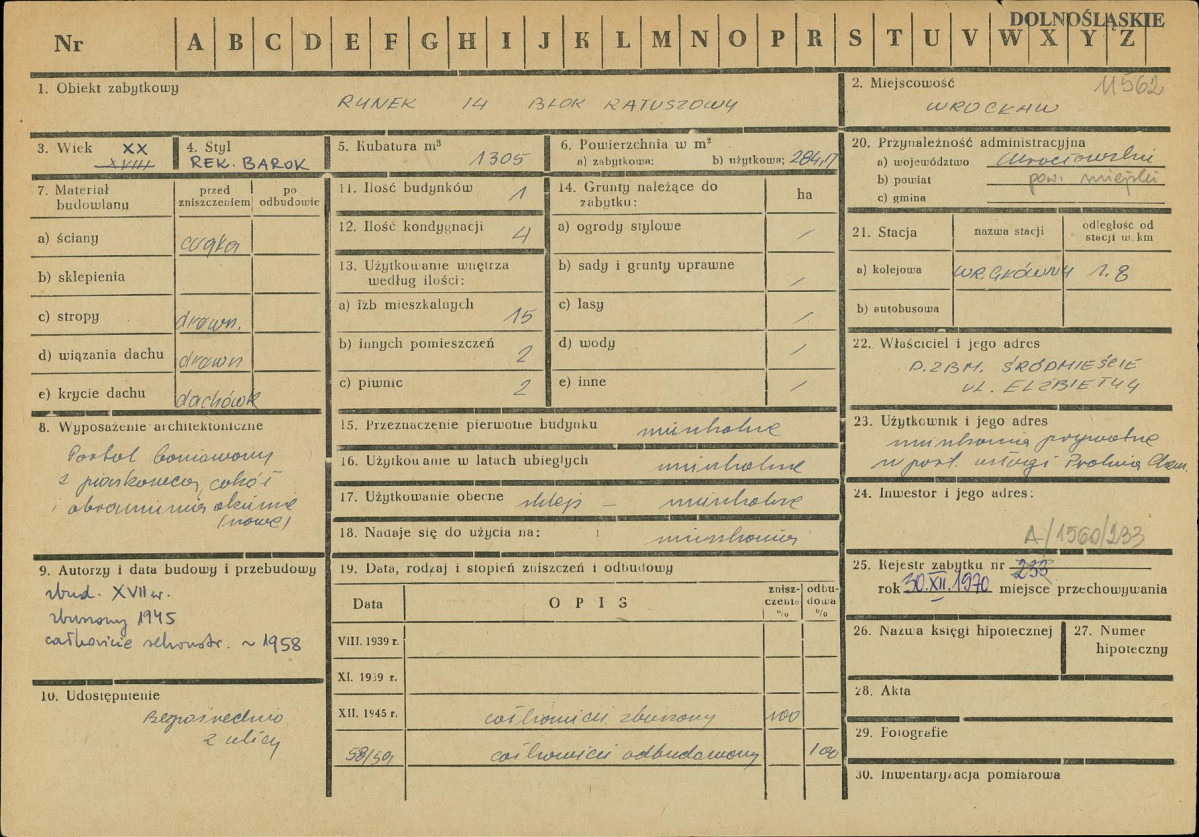 DOLNOŚLĄSKIE
Nr A B C D E F G H I J K L M N O P R S T U V W X Y Z
1. Obiekt zabytkowy
RYNEK 14 BLOK RATUSZOWY
2. Miejscowość 11562
WROCŁAW
3. Wiek XX
XVIII
4. Styl
REK. BAROK
5. Kubatura m³
1305
6. Powierzchnia w m²
a) zabytkowa: b) użytkowa: 284,17
20. Przynależność administracyjna
a) województwo Wrocławskie
b) powiat pow. miejski
c) gmina
7. Materiał budowlany
przed zniszczeniem
po odbudowie
a) ściany cegła
b) sklepienia
c) stropy drewn.
d) wiązania dachu drewn
e) krycie dachu dachówk
11. Ilość budynków 1
12. Ilość kondygnacji 4
13. Użytkowanie wnętrza według ilości:
a) izb mieszkalnych 15
b) innych pomieszczeń 2
c) piwnic 2
14. Grunty należące do zabytku: ha
a) ogrody stylowe /
b) sady i grunty uprawne /
c) lasy /
d) wody /
e) inne /
21. Stacja nazwa stacji odległość od stacji w km
a) kolejowa WR. GŁÓWNY 1.8
b) autobusowa
22. Właściciel i jego adres
D.ZBM. ŚRÓDMIEŚCIE
UL. ELŻBIETY 4
8. Wyposażenie architektoniczne
Portal boniowany
z piaskowca, cokół
i obramienia okienne
(nowe)
15. Przeznaczenie pierwotne budynku mieszkalne
16. Użytkowanie w latach ubiegłych mieszkalne
17. Użytkowanie obecne sklep – mieszkalne
18. Nadaje się do użycia na: mieszkania
23. Użytkownik i jego adres
mieszkania prywatne
w part. usługi Pralnia Chem.
24. Inwestor i jego adres:
A/1560/233
25. Rejestr zabytku nr 233
rok 30.XII.1970 miejsce przechowywania
9. Autorzy i data budowy i przebudowy
zbud. XVII w.
zburzony 1945
całkowicie rekonstr. ~ 1958
19. Data, rodzaj i stopień zniszczeń i odbudowy
Data OPIS zniszczenie % odbudowa %
VIII. 1939 r.
XI. 1939 r.
XII. 1945 r. całkowicie zburzony 100
58/59 całkowicie odbudowany 100
26. Nazwa księgi hipotecznej
27. Numer hipoteczny
10. Udostępnienie
Bezpośrednio
z ulicy
28. Akta
29. Fotografie
30. Inwentaryzacja pomiarowa